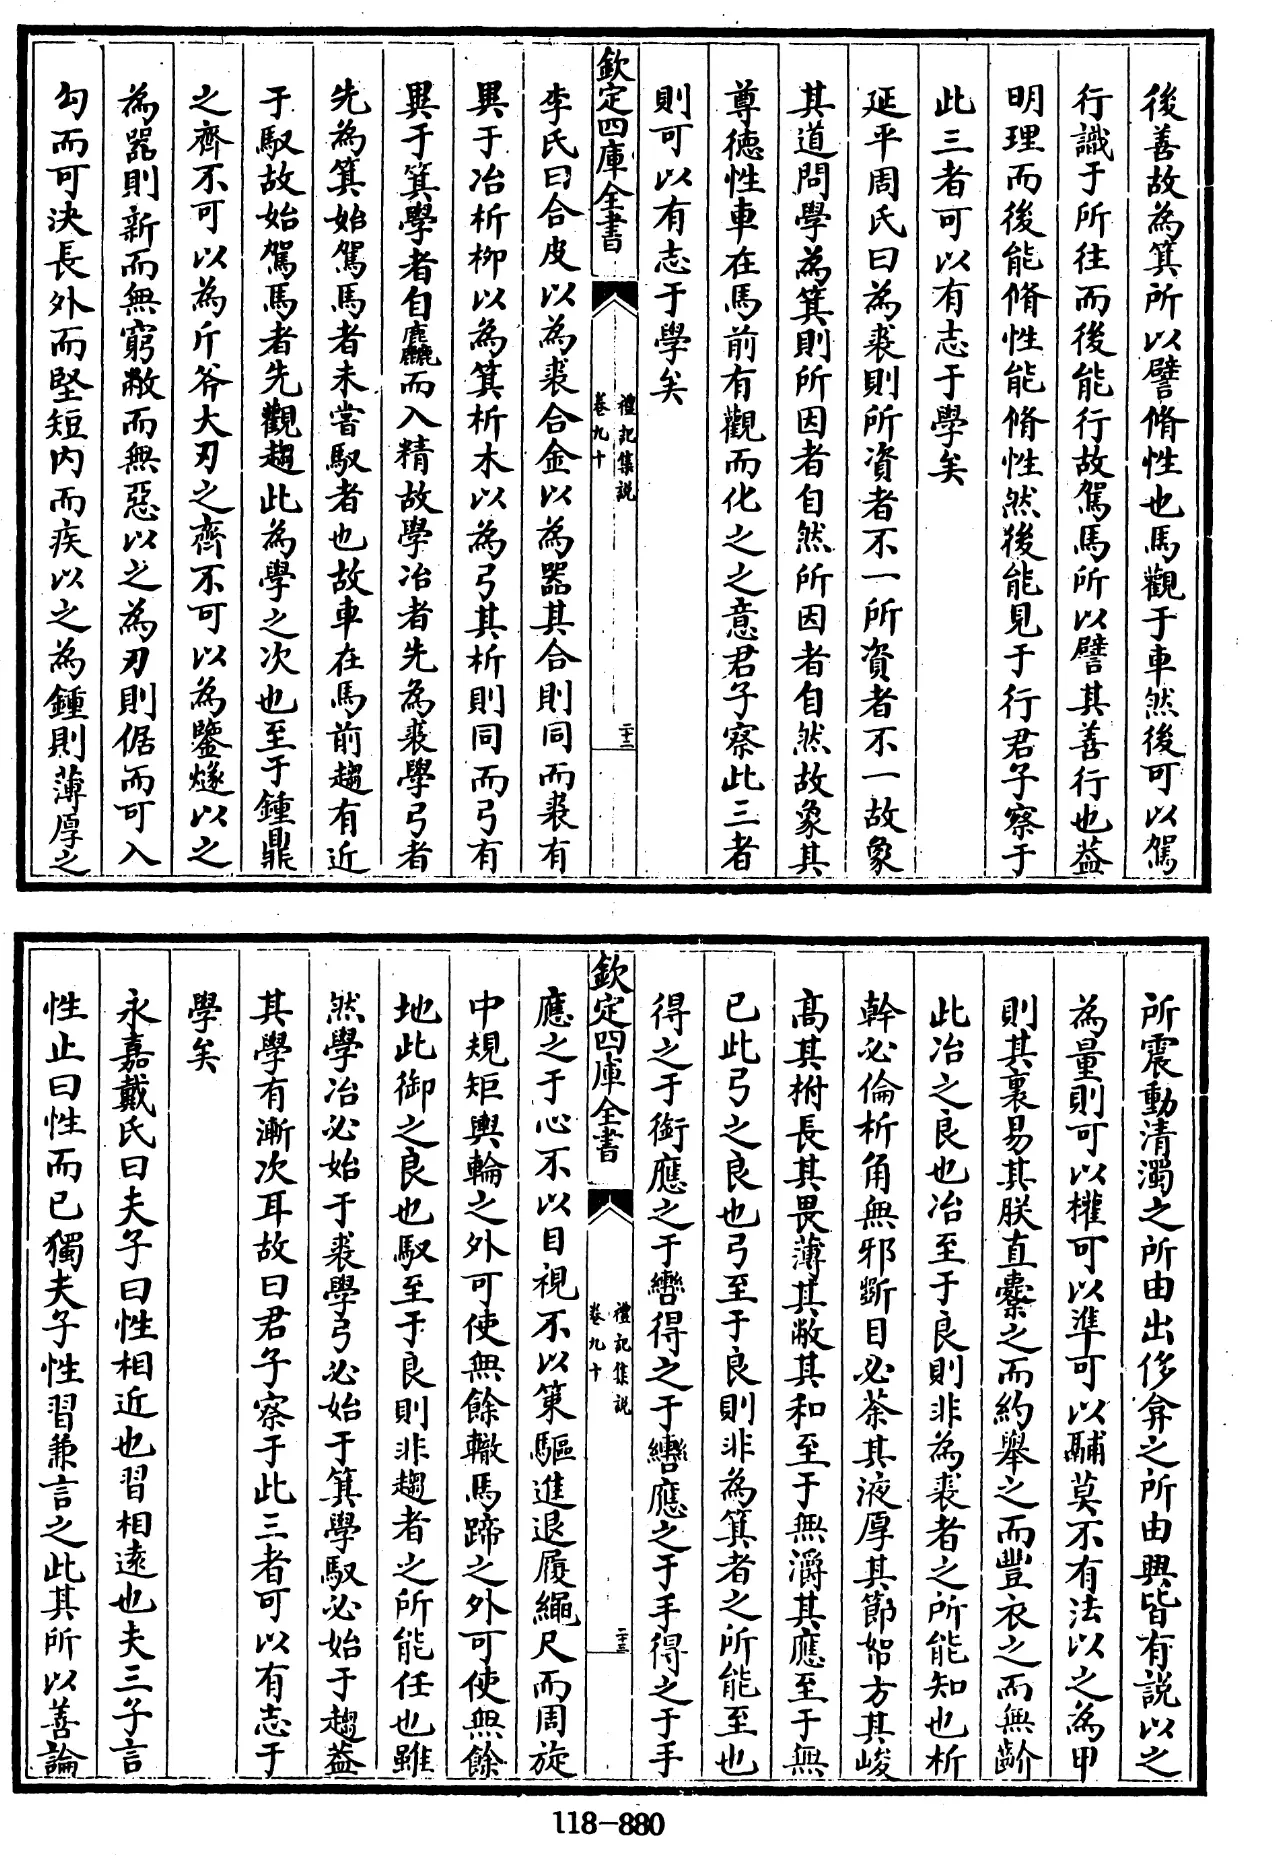 後善故為箕所以譬脩性也馬觀于車然後可以駕
行識于所往而後能行故駕馬所以譬其善行也葢
明理而後能脩性能脩性然後能見于行君子察于
此三者可以有志于學矣
延平周氏曰為裘則所資者不一所資者不一故象
其道問學為箕則所因者自然所因者自然故象其
尊徳性車在馬前有觀而化之之意君子察此三者
則可以有志于學矣
欽定四庫全書
禮記集説
卷九十
二十二
李氏曰合皮以為裘合金以為器其合則同而裘有
異于冶析柳以為箕析木以為弓其析則同而弓有
異于箕學者自麤而入精故學冶者先為裘學弓者
先為箕始駕馬者未嘗馭者也故車在馬前趨有近
于馭故始駕馬者先觀趨此為學之次也至于鍾鼎
之齊不可以為斤斧大刃之齊不可以為鑒燧以之
為器則新而無窮敝而無惡以之為刃則倨而可入
勾而可決長外而堅短内而疾以之為鍾則薄厚之
所震動清濁之所由出侈弇之所由興皆有説以之
為量則可以權可以準可以鬴莫不有法以之為甲
則其裏易其朕直櫜之而約舉之而豐衣之而無齘
此冶之良也冶至于良則非為裘者之所能知也析
幹必倫析角無邪斲目必荼其液厚其節帤方其峻
髙其柎長其畏薄其敝其和至于無灂其應至于無
已此弓之良也弓至于良則非為箕者之所能至也
得之于銜應之于轡得之于轡應之于手得之于手
欽定四庫全書
禮記集説
卷九十
二十三
應之于心不以目視不以策驅進退履繩尺而周旋
中規矩輿輪之外可使無餘轍馬蹄之外可使無餘
地此御之良也馭至于良則非趨者之所能任也雖
然學冶必始于裘學弓必始于箕學馭必始于趨葢
其學有漸次耳故曰君子察于此三者可以有志于
學矣
永嘉戴氏曰夫子曰性相近也習相逺也夫三子言
性止曰性而已獨夫子性習兼言之此其所以善論
118-880